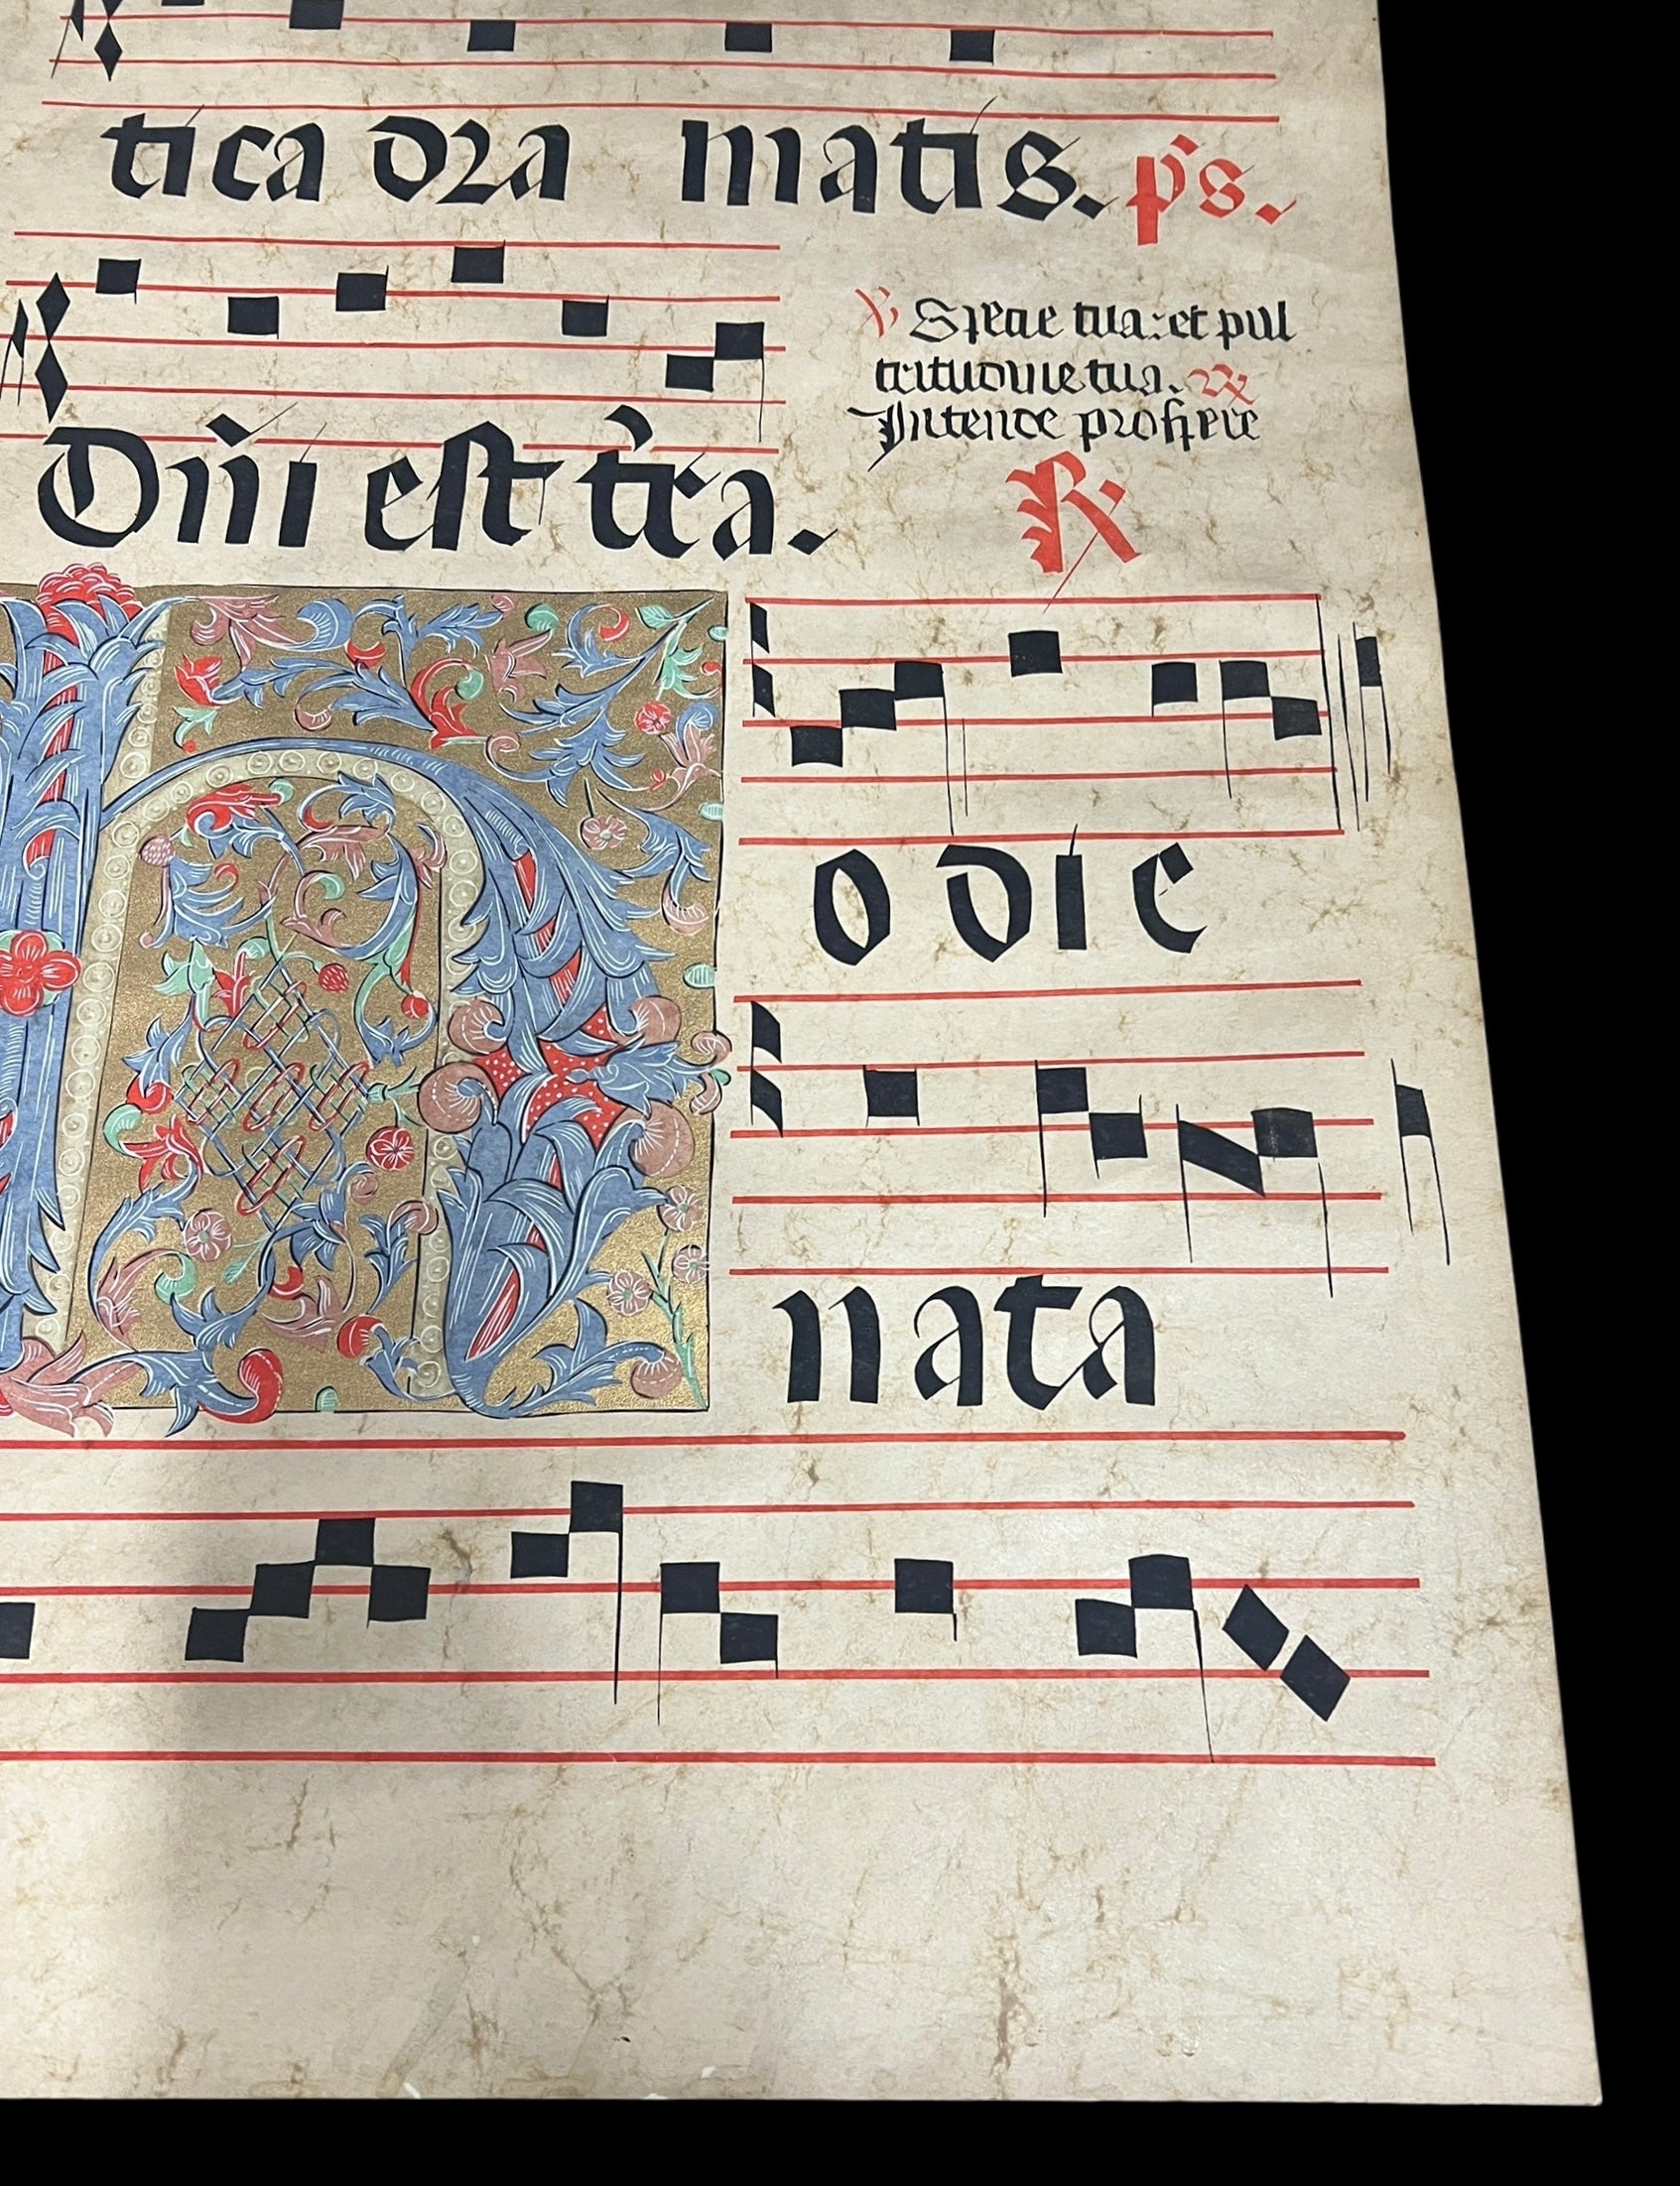 tica dra matis. ps.
℣ Specie tua: et pul
critudine tua. ℟
Intende prospere
Dñi est tr̃a.
℟
H odie
nata